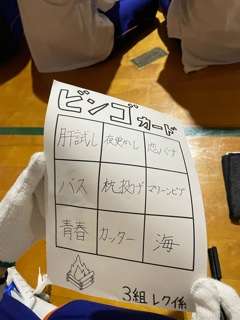 ビンゴカード
肝試し 夜更かし 恋バナ
バス 枕投げ マリーンピア
青春 カッター 海
3組 レク係